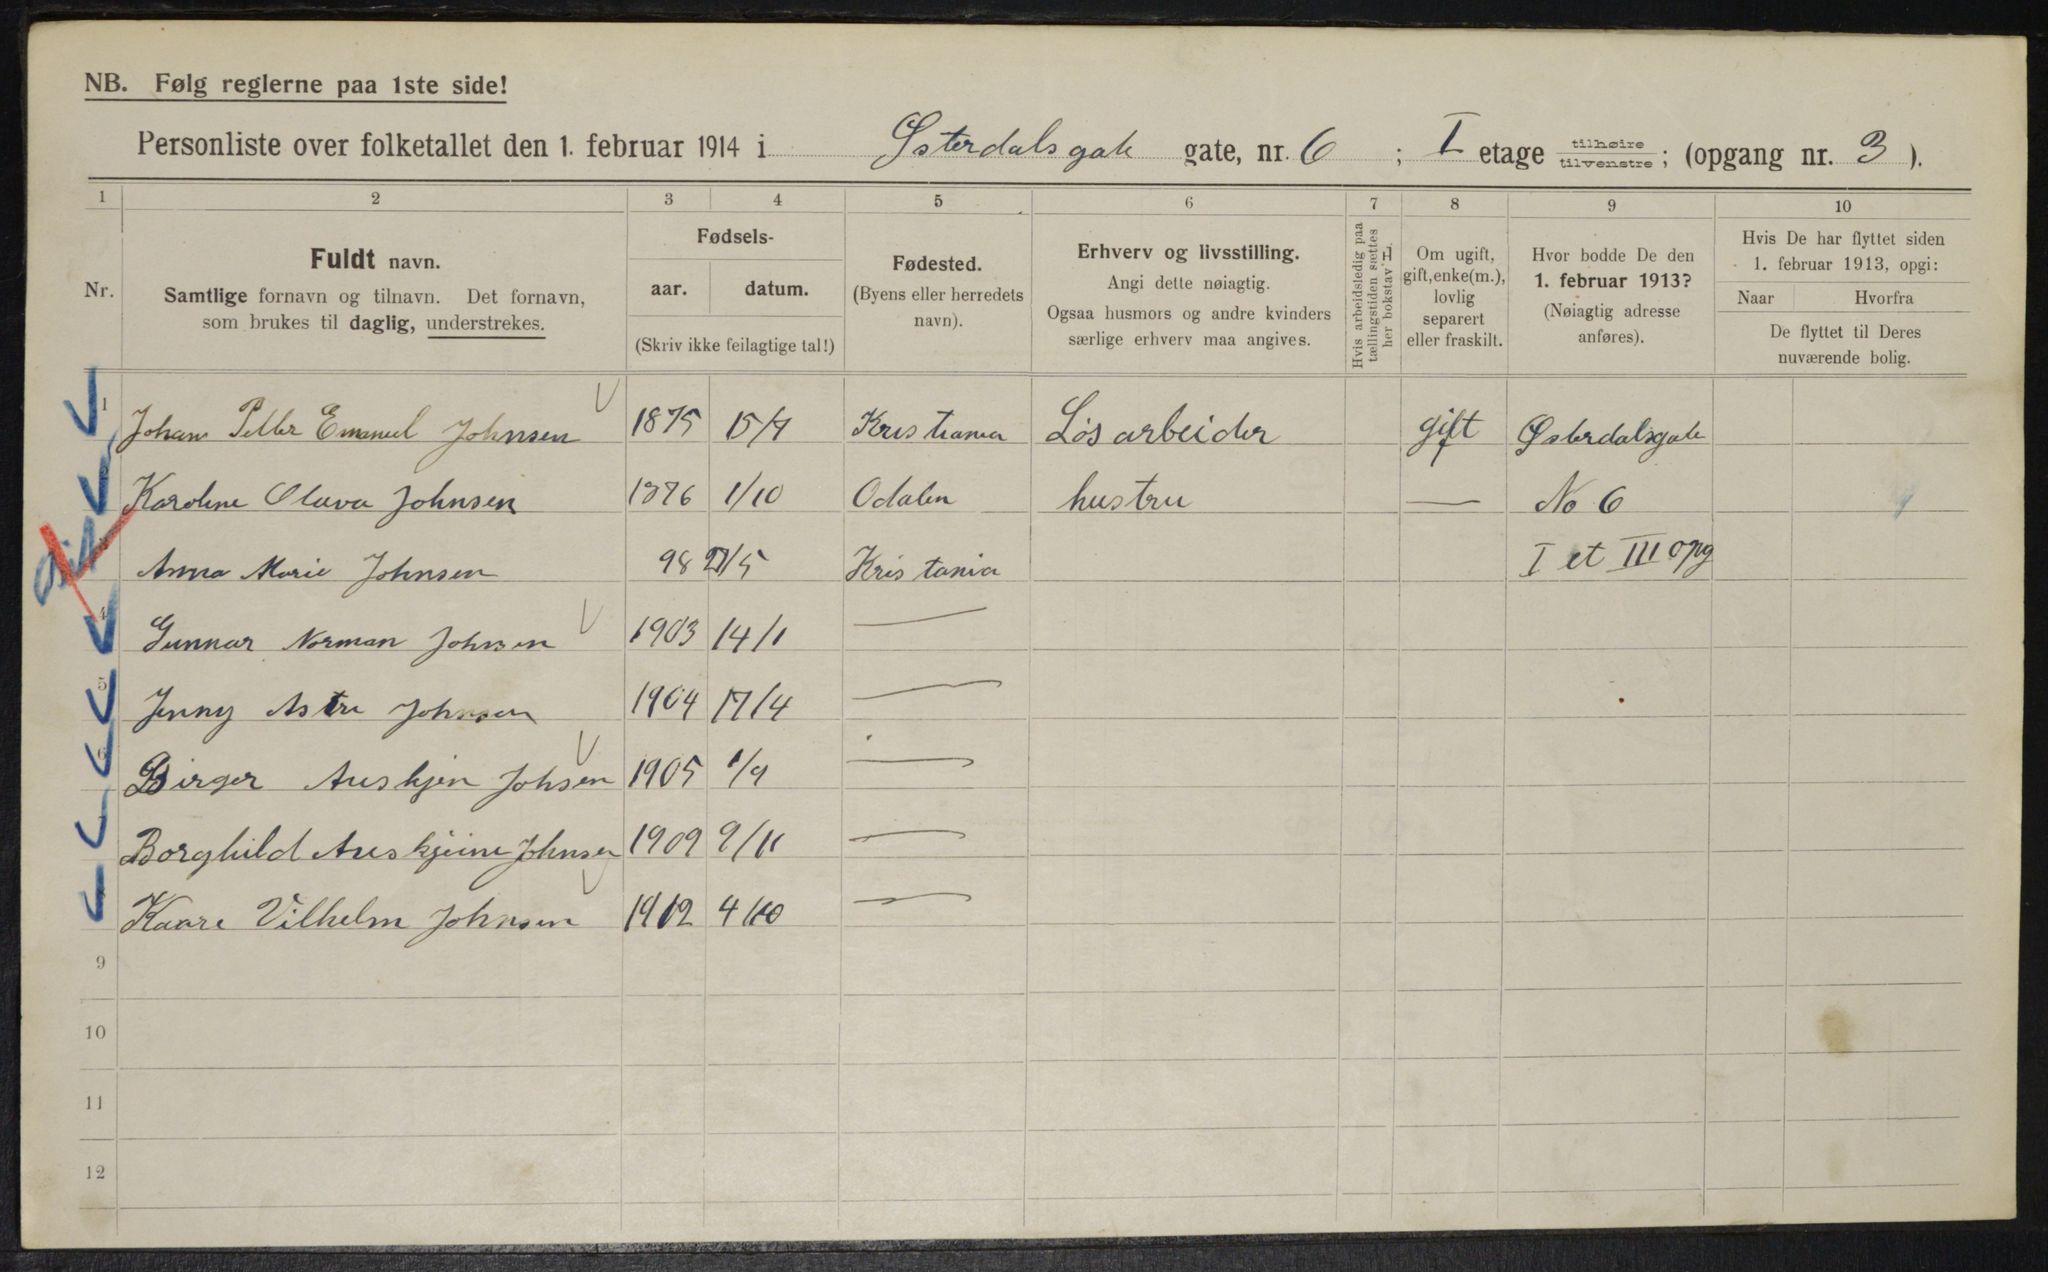 NB. Følg reglerne paa 1ste side!
Personliste over folketallet den 1. februar 1914 i Østerdalsgate gate, nr. 6; I etage tilhøire/tilvenstre; (opgang nr. 3).
1 2 3 4 5 6 7 8 9 10
Nr.
Fuldt navn.
Samtlige fornavn og tilnavn. Det fornavn,
som brukes til daglig, understrekes.
Fødsels-
aar. datum.
(Skriv ikke feilagtige tal!)
Fødested.
(Byens eller herredets
navn).
Erhverv og livsstilling.
Angi dette nøiagtig.
Ogsaa husmors og andre kvinders
særlige erhverv maa angives.
Hvis arbeidsledig paa
tællingstiden sættes
her bokstav L
Om ugift,
gift, enke(m.),
lovlig
separert
eller fraskilt.
Hvor bodde De den
1. februar 1913?
(Nøiagtig adresse
anføres).
Hvis De har flyttet siden
1. februar 1913, opgi:
Naar Hvorfra
De flyttet til Deres
nuværende bolig.
1 Johan Petter Emanuel Johnsen 1875 15/7 Kristiania Løsarbeider gift Østerdalsgate
Karoline Olava Johnsen 1876 1/10 Odalen hustru — No 6
3 Anna Marie Johnsen 98 /5 Kristania I et III opg
4 Gunnar Norman Johnsen 1903 14/1 —
5 Jenny Astri Johnsen 1904 17/4 —
6 Birger Auskjen Johsen 1905 1/9 —
Borghild Auskjeine Johnsen 1909 9/11 —
Kaare Vilhelm Johnsen 1912 4/10 —
9
10
11
12